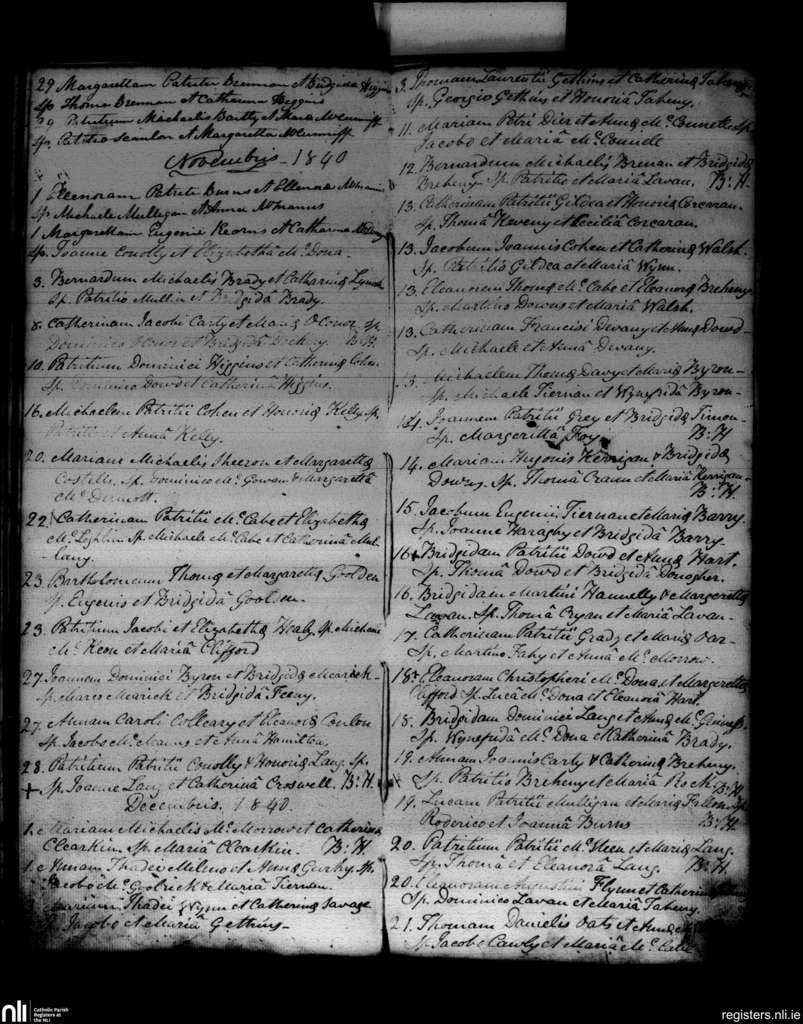 29 Margarettam Patritii Brennan et Bridgida Higgins
Sp Thoma Brennan et Catherina Higgins
29 Patritium Michaelis Bartly et
Sp. Patritio Scanlon et Margaretta
Novembris - 1840
1 Eleenoram Patritii Burns et Ellenora McManis
Sp Michaele Mulligan et Anna McManus
1 Margarettam Eugenii Kearns et Catharina
Sp. Joanne Conolly et Elizabethâ Mc Dona.
3. Bernardum Michaelis Brady et Catharinæ Lynch
Sp. Patritio Mullin et Bridgidâ Brady.
8. Catherinam Jacobi Carty et Mariæ O Conor. Sp
Dominico et Bridgidâ B: H.
10. Patritium Dominici Higgins et Catherinæ Cohen.
Sp. Dominico Dowd et Catherinâ Higgins.
16. Michaelem Patritii Cohen et Honoriæ Kelly Sp
Patritio et Annâ Kelly.
20. Mariam Michaelis Sheeron et Margarettæ
Costello. Sp. Dominico Mc Gowan & Margarettâ
Mc Dermott.
22. Catherinam Patritii Mc Cabe et Elizabethæ
Mc Loghlin Sp. Michaele Mc Cabe et Catherinâ Mul-
lany.
23. Bartholomeum Thomæ et Margarettæ Goolden
Sp. Eugenio et Bridgidâ Goolden.
23. Patritium Jacobi et Elizabethæ Healy. Sp. Michaele
Mc Keon et Mariâ Clifford
27. Joannem Dominici Byron et Bridgidæ Mearick-
Sp. Mearick et Bridgidâ Feeny.
27. Annam Caroli Colleary et Eleanoræ Conlon
Sp. Jacobo Mc Manus et Annâ Hamilton.
28. Patritium Patritii Conolly & Honoriæ Lang. Sp.
+ Sp. Joanne Lang et Catherinâ Croswell. B: H.
Decembris. 1840.
1. Mariam Michaelis Mc Morrow et Catherinæ
Clearkin. Sp. Mariâ Clearkin. B: H.
1. Annam Thadei et Annæ Sp.
Jacobo Mc Goolrick & Mariâ Tiernan.
Mariam Thadei Wynn et Catherinæ Savage
Sp. Jacobo et Mariâ Gethins-
3. Thomam Laurentii Gethins et Catherinæ Taheny
Sp. Georgio Gethins et Honoriâ Taheny.
11. Mariam Petri Dier et Annæ Mc Connell Sp
Jacobo et Mariâ Mc Connell
12. Bernardum Michaelis Brenan et Bridgidæ
Breheny Sp. Patritio et Mariâ Lavan. B: H.
13. Catherinam Patritii Gildea et Honoriæ Corcoran.
Sp. Thomâ Heveny et Ceciliâ Corcaran.
13. Jacobum Joannis Cohen et Catherinæ Walsh.
Sp. Patritio Gildea et Mariâ Wynn.
13. Eleanorem Thomæ Mc Cabe et Eleanoræ Breheny.
Sp. Martino Downs et Mariâ Walsh.
13. Catherinam Francisci Devany et Annæ Dowd-
Sp. Michaele et Annâ Devany.
13. Michaelem Thomæ Davy et Mariæ Byron-
Sp. Michaele Tiernan et Wynefridâ Byron-
14. Joannem Patritii Grey et Bridgidæ Timon-
Sp. Margerittâ Foy B: H
14. Mariam Hugonis Kerrigan & Bridgidæ
Downy. Sp. Thomâ Crann et Mariâ Kerrigan-
B: H.
15. Jacobum Eugenii Tiernan et Mariæ Barry.
Sp. Joanne Haraghy et Bridgidâ Barry.
16+ Bridgidam Patritii Dowd et Annæ Hart.
Sp. Thomâ Dowd et Bridgidâ Donagher.
16. Bridgidam Martini Hannelly & Margerettæ
Lavan. Sp. Thomâ Cryan et Mariâ Lavan-
17. Catherinam Patritii Grady et Mariæ
Sp. Martino Fahy et Annâ Mc Morrow.
18. Eleanoram Christopheri Mc Dona et Margerettæ
Clifford Sp. Lucâ Mc Dona et Eleanorâ Hart.
18. Bridgidam Dominici Lang et Annæ Mc Guiness.
Sp. Wynefridâ Mc Dona et Catherinâ Brady.
19. Annam Joannis Carty & Catherinæ Breheny.
Sp. Patritio Breheny et Mariâ Rock B: H.
19. Lucam Patritii Mulligan et Mariæ Fallon. Sp
Roderico et Joannâ Burns B: H.
20. Patritium Patritii Mc Keen et Mariæ Lang.
Sp. Thomâ et Eleanorâ Lang. B: H.
20. Eleanoram Augustini Flynn et Catherinæ
Sp. Dominico Lavan et Mariâ Taheny.
21. Thomam Danielis Oats et Annæ
Sp. Jacobo Cawly et Mariâ Mc Cabe
nli
Catholic Parish
Registers at
the NLI
registers.nli.ie